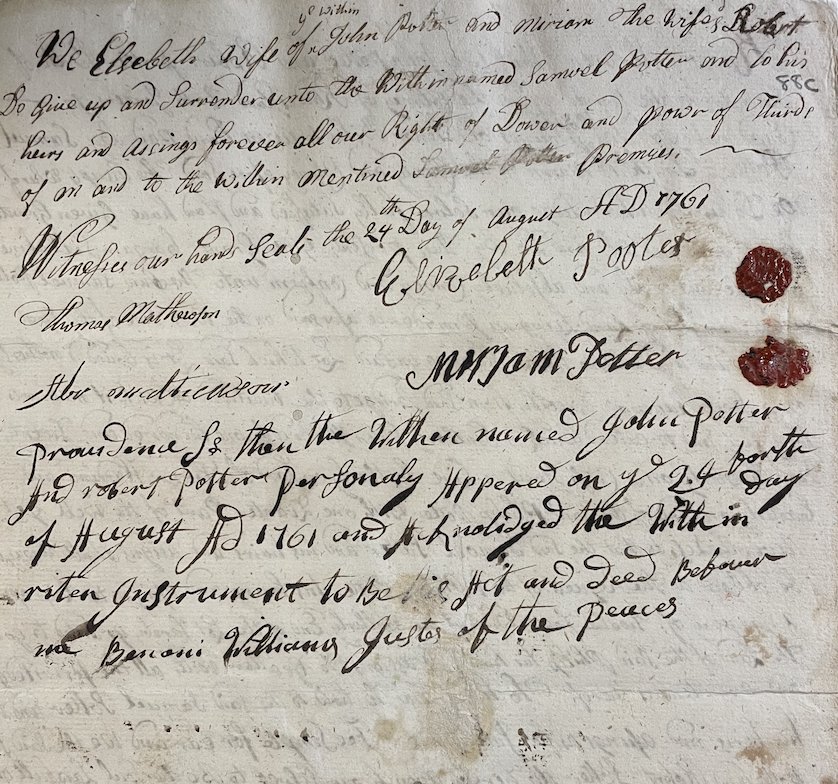 ye Within
We Elsebeth Wife of John Potter and Miriam the Wife of Robert
Do Give up and Surrender unto the Within named Samuel Potter and to his
88C
heirs and assings forever all our Right of Dower and powr of Thirds
of in and to the Within Mentined Samuel Potter Premises.
Witnesses our hands Seals the 24th Day of August AD 1761
Elizebeth Pooter
Thomas Mathewson
Mirjam Potter
Providence Ss then the Within named John Potter
And robert Potter personaly Appered on ye 24 forth day
of August AD 1761 and Acknolidged the With in
riten Instrument to Be his Act and deed Befour
me Benoni Williams Justes of the Peaces